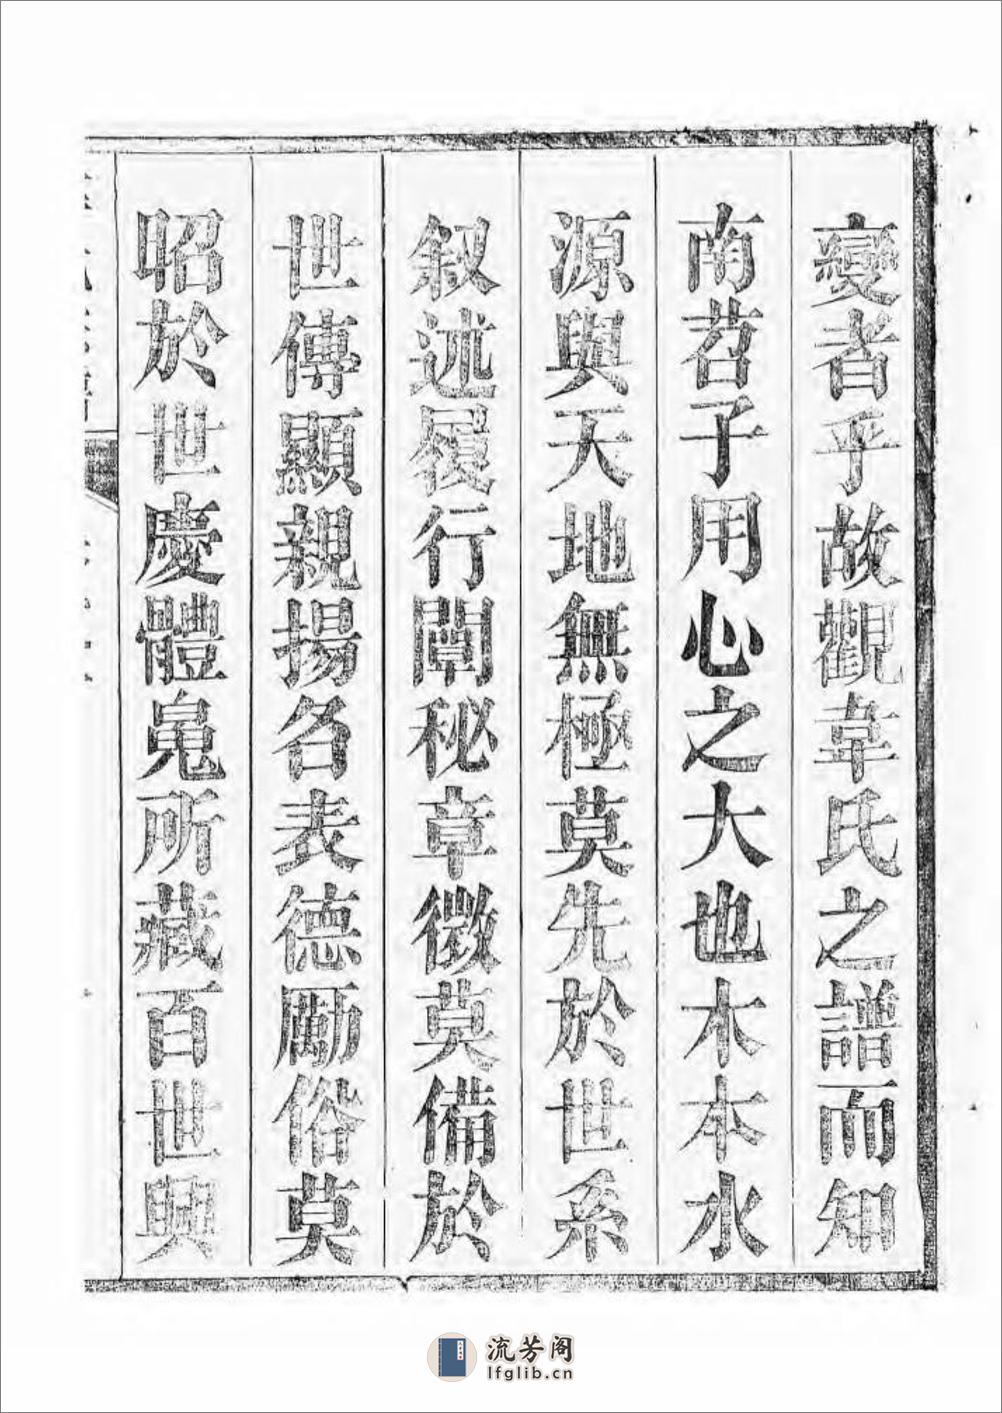 變者乎故觀韋氏之譜而知
南苕子用心之大也木本水
源與天地無極莫先於世系
敍述履行闡秘章微莫備於
世傳顯親揚名表德勵俗莫
昭於世慶體鬼所藏百世興
流芳阁
lfglib.cn